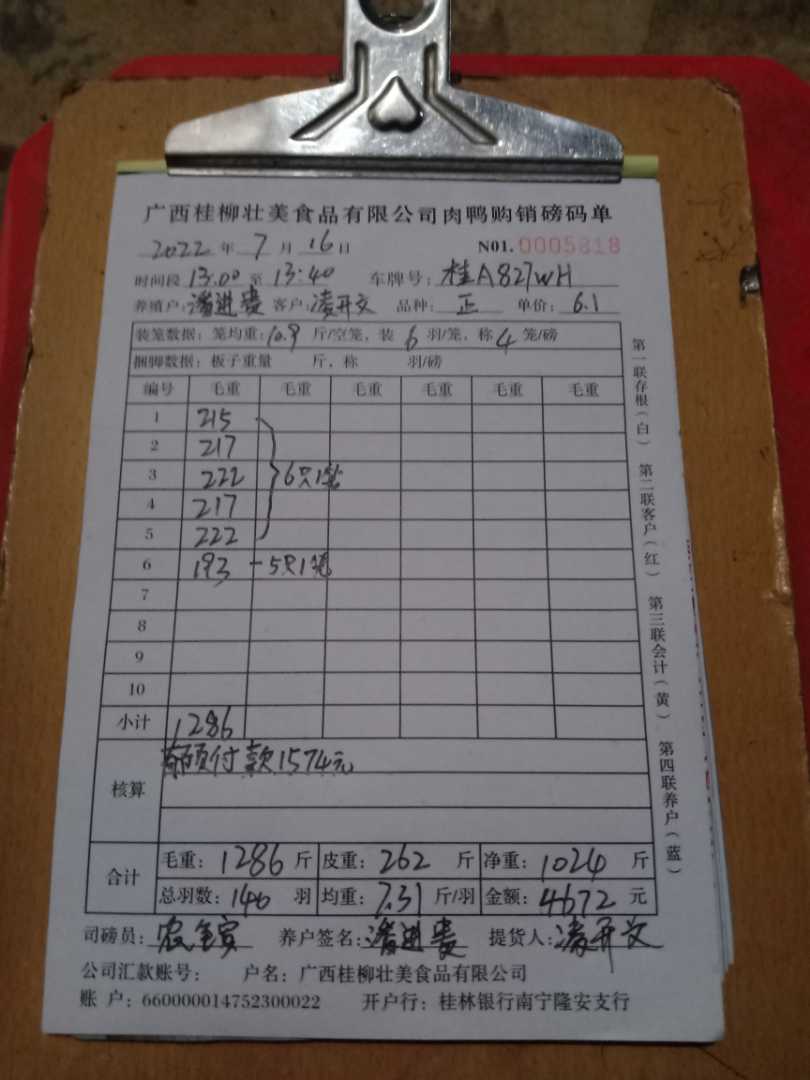 广西桂柳壮美食品有限公司肉鸭购销磅码单
2022 年 7 月 16 日 N01. 0005818
时间段 13:00 至 13:40 车牌号: 桂A827WH
养殖户: 潘进贵 客户: 凌开文 品种: 正 单价: 6.1
装笼数据: 笼均重: 10.9 斤/空笼, 装 6 羽/笼, 称 4 笼/磅
捆脚数据: 板子重量 斤, 称 羽/磅
编号 毛重 毛重 毛重 毛重 毛重 毛重
1 215
2 217
3 222 6只1笼
4 217
5 222
6 193 — 5只1笼
7
8
9
10
小计 1286
核算 付款1574元
合计 毛重: 1286 斤 皮重: 262 斤 净重: 1024 斤
总羽数: 140 羽 均重: 7.31 斤/羽 金额: 4672 元
司磅员: 农 宾 养户签名: 潘进贵 提货人: 凌开文
公司汇款账号: 户名: 广西桂柳壮美食品有限公司
账 户: 660000014752300022 开户行: 桂林银行南宁隆安支行
第一联存根(白) 第二联客户(红) 第三联会计(黄) 第四联养户(蓝)